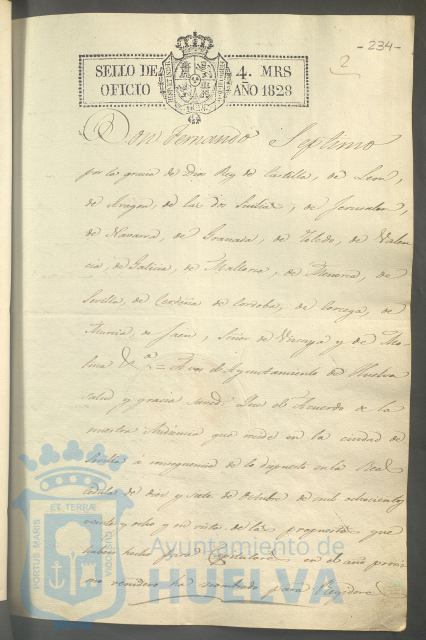 - 234 -
2
SELLO DE 4. MRS
OFICIO AÑO 1828
Don Fernando Septimo
por la gracia de Dios Rey de Castilla, de Leon,
de Aragon, de las dos Sicilias, de Jerusalen,
de Navarra, de Granada, de Toledo, de Valen
cia, de Galicia, de Mallorca, de Menorca, de
Sevilla, de Cerdeña de Cordoba, de Corcega, de
Murcia, de Jaen, Señor de Vizcaya y de Mo-
lina &.ª = A vos el Ayuntamiento de Huelva
salud y gracia Que el Acuerdo de la
nuestra Audiencia que reside en la ciudad de
Sevilla á consequencia de lo dispuesto en la Real
Cedula de diez y siete de Octubre de mil ochocientos
veinte y ocho y en vista de las propuestas que
habeis hecho para en el año procsi
mo venidero ha nombrado para Regidores
PORTUS MARIS
ET TERRÆ
CUSTODIA
Ayuntamiento de
HUELVA